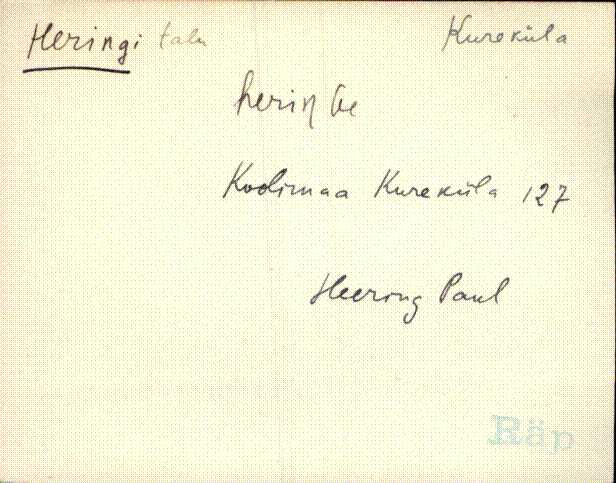 Heringi talu Kureküla
heriŋ Ge
Kodimaa Kureküla 127
Heering Paul
Räp